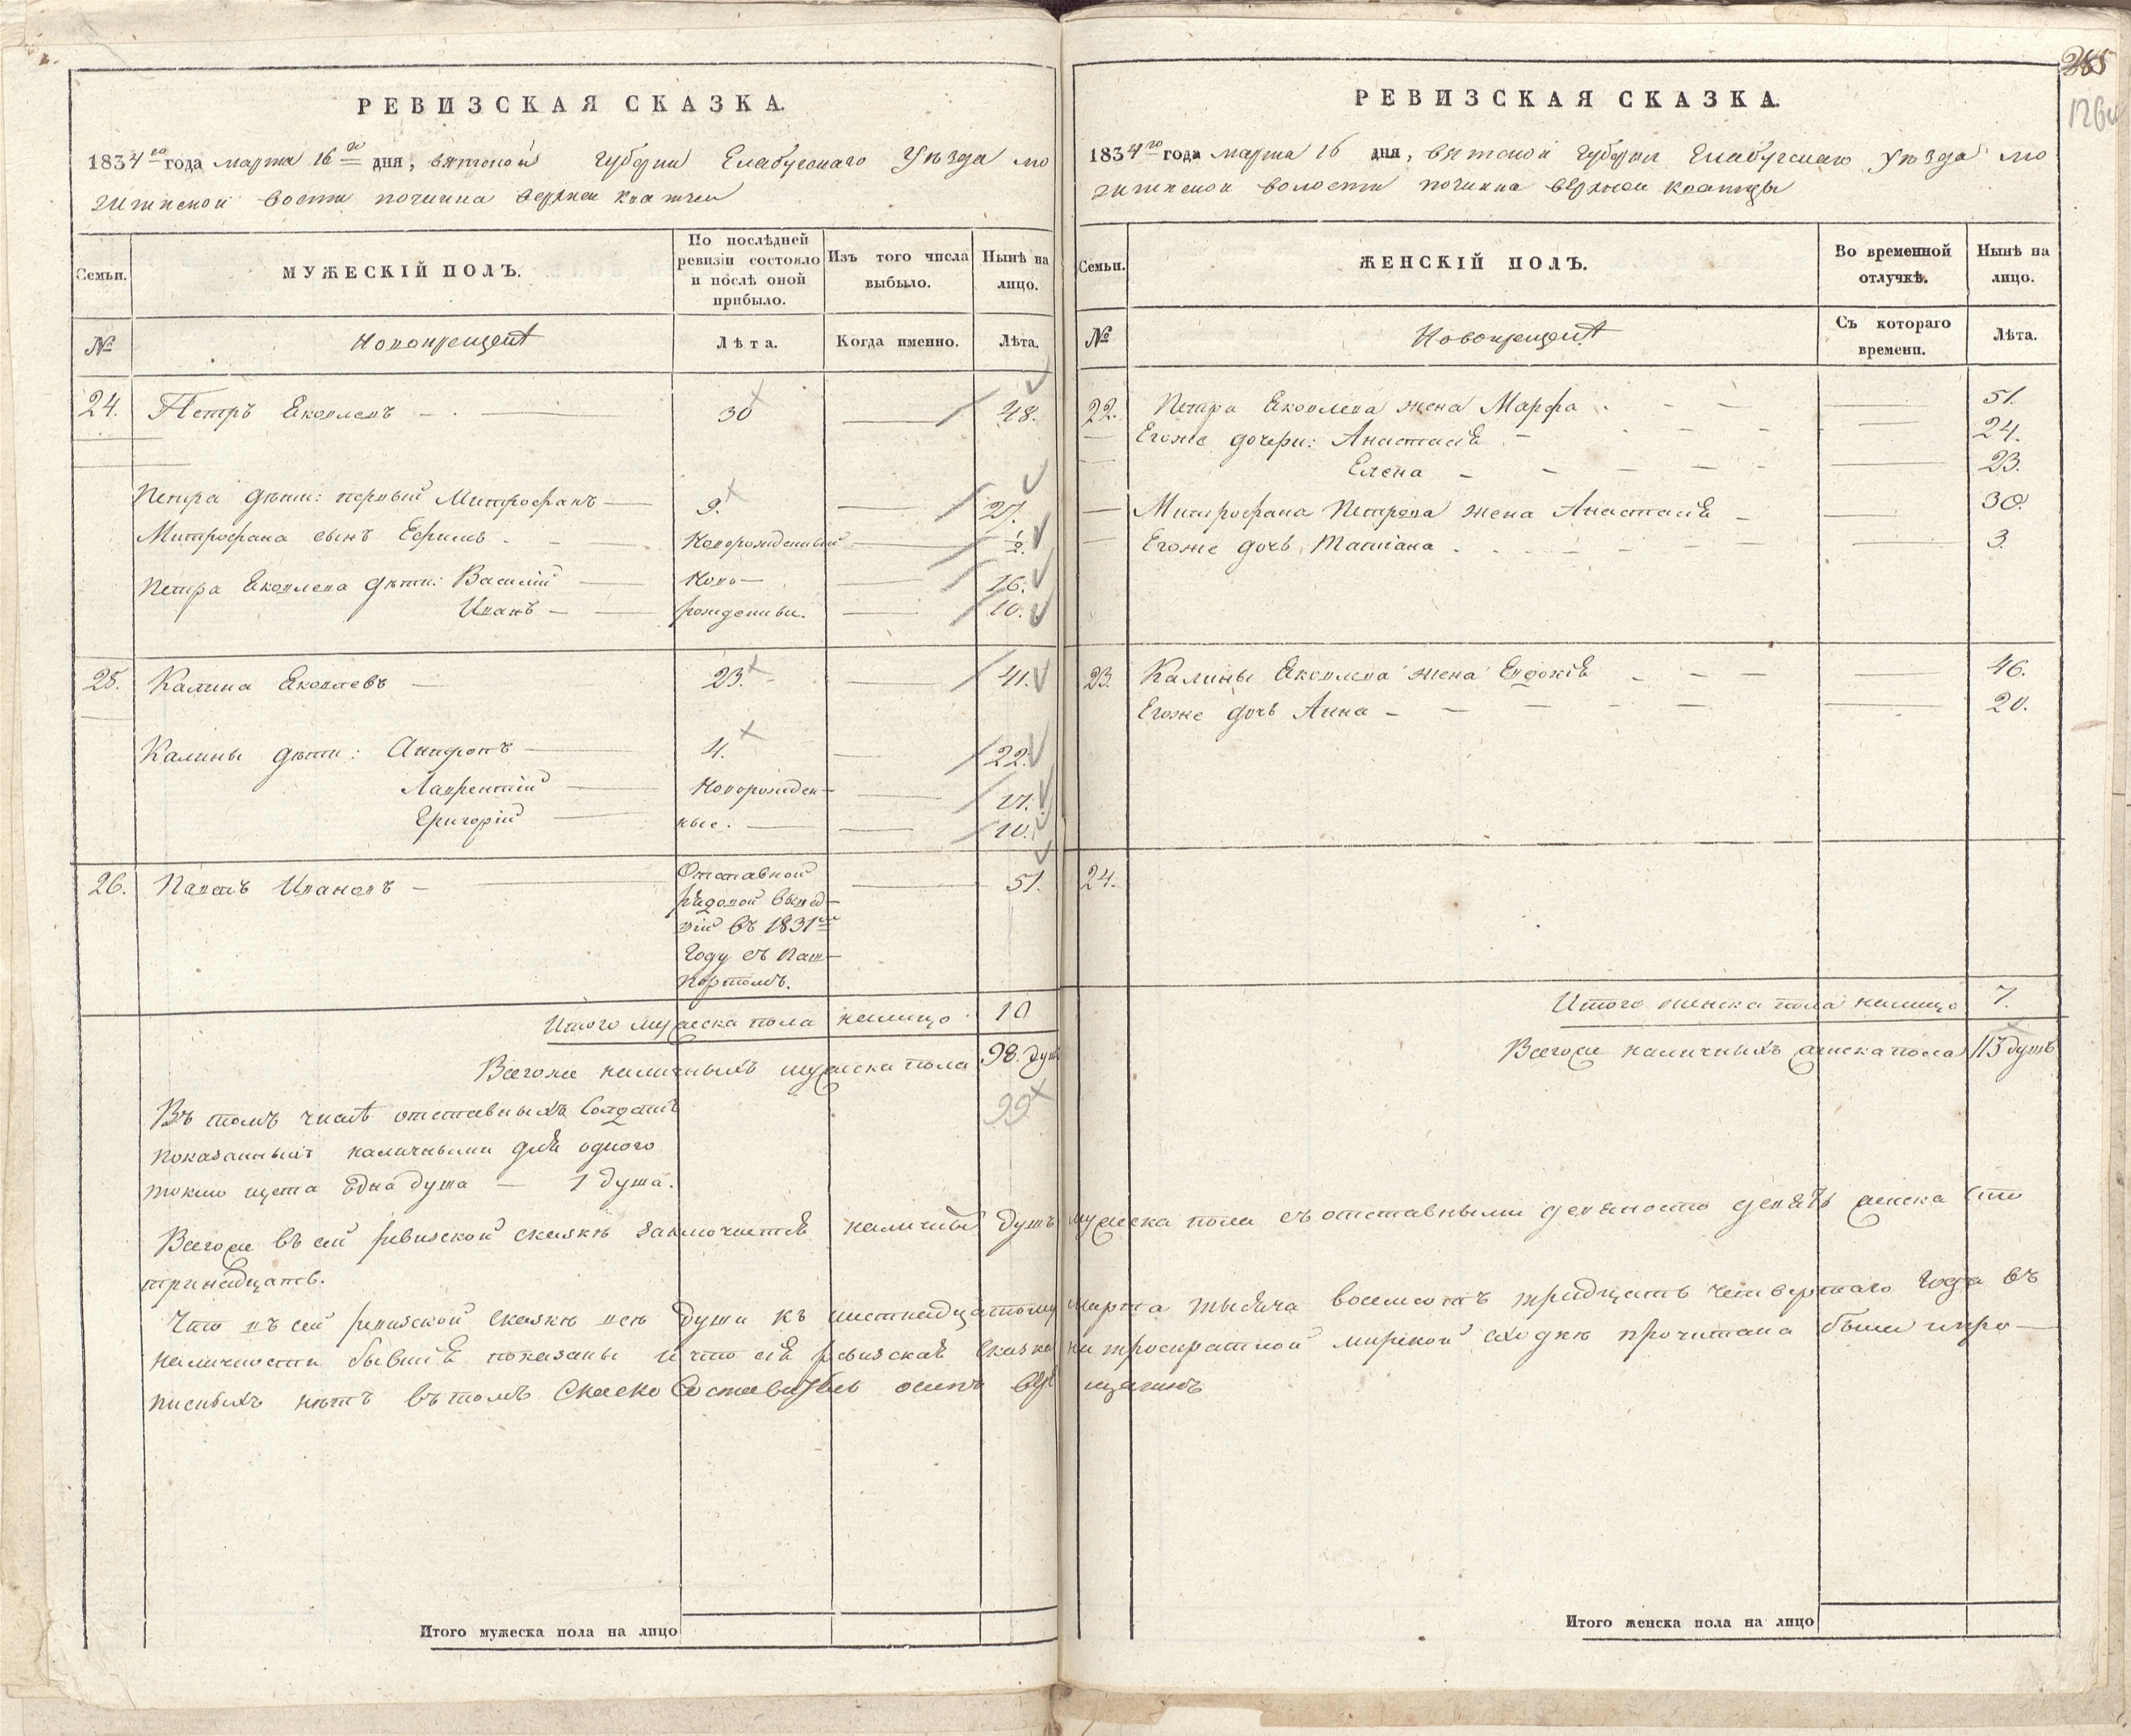 РЕВИЗСКАЯ СКАЗКА.
1834го года марта 16го дня, вятской губернии Елабугскаго Уѣзда мо
зитиской воости починка верхнеи
Семьи.
МУЖЕСКІЙ ПОЛЪ.
По послѣдней ревизіи состояло и послѣ оной прибыло.
Изъ того числа выбыло.
Нынѣ на лицо.
№
Новокрещенъ
Лѣта.
Когда именно.
Лѣта.
24. Петръ Яковлевъ — 30 — 48.
Петра дѣти: первый Митрофанъ — 9. — 27.
Митрофана сынъ Ефимъ. — Новорожденный — ½
Петра Яковлева дѣти: Василій — Ново— — 16.
Иванъ — рожденны. — 10.
25. Калина Яковлевъ — 23. — 41.
Калины дѣти: Анфронъ — 4. — 22.
Лаврентій — Новорожден— — 17.
Григорій — ные. — 10.
26. Павелъ Ивановъ — Отставной — 51.
рядовой вышед—
шій въ 1831мъ
Году съ паш—
портомъ.
Итого мужеска пола налицо 10
Всегоже наличныхъ мужеска пола 98. душ
99
Въ томъ числѣ отставныхъ Солдатъ
показанныхъ наличными для одного
токмо щета Една душа — 1 душа.
РЕВИЗСКАЯ СКАЗКА.
285
126
1834го года марта 16 дня, вятской губернии Елабугскаго Уѣзда мо
зитиской волости починка верхнеи
Семьи.
ЖЕНСКІЙ ПОЛЪ.
Во временной отлучкѣ.
Нынѣ на лицо.
№
Новокрещенъ
Съ котораго времени.
Лѣта.
22. Петра Яковлева жена Марфа — 51.
Егоже дочери: Анастасія — 24.
Елена — 23.
Митрофана Петрова жена Анастасія — 30.
Егоже дочь Татіана — 3.
23. Калины Яковлева жена Евдокія — 46.
Егоже дочь Анна — 20.
24.
Итого женска пола налицо 7.
Всегоже наличныхъ женска пола 113 душъ
Всегоже въ сей ревизской скаскѣ заключается наличны душъ мужеска пола съ отставными девяносто девять женска сто
тринадцать.
Что въ сей ревизской скаскѣ всѣ души къ шестнадцатому марта тысяча восемсотъ тридцать четвертаго Года въ
наличности бывшія показаны и что сія ревизская сказка на троекратной мирской сходкѣ прочитана была и про—
писныхъ нѣтъ въ томъ Скаско Составитель осипъ
Итого мужеска пола на лицо
Итого женска пола на лицо